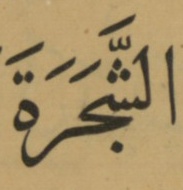 الشَّجَرَةَ